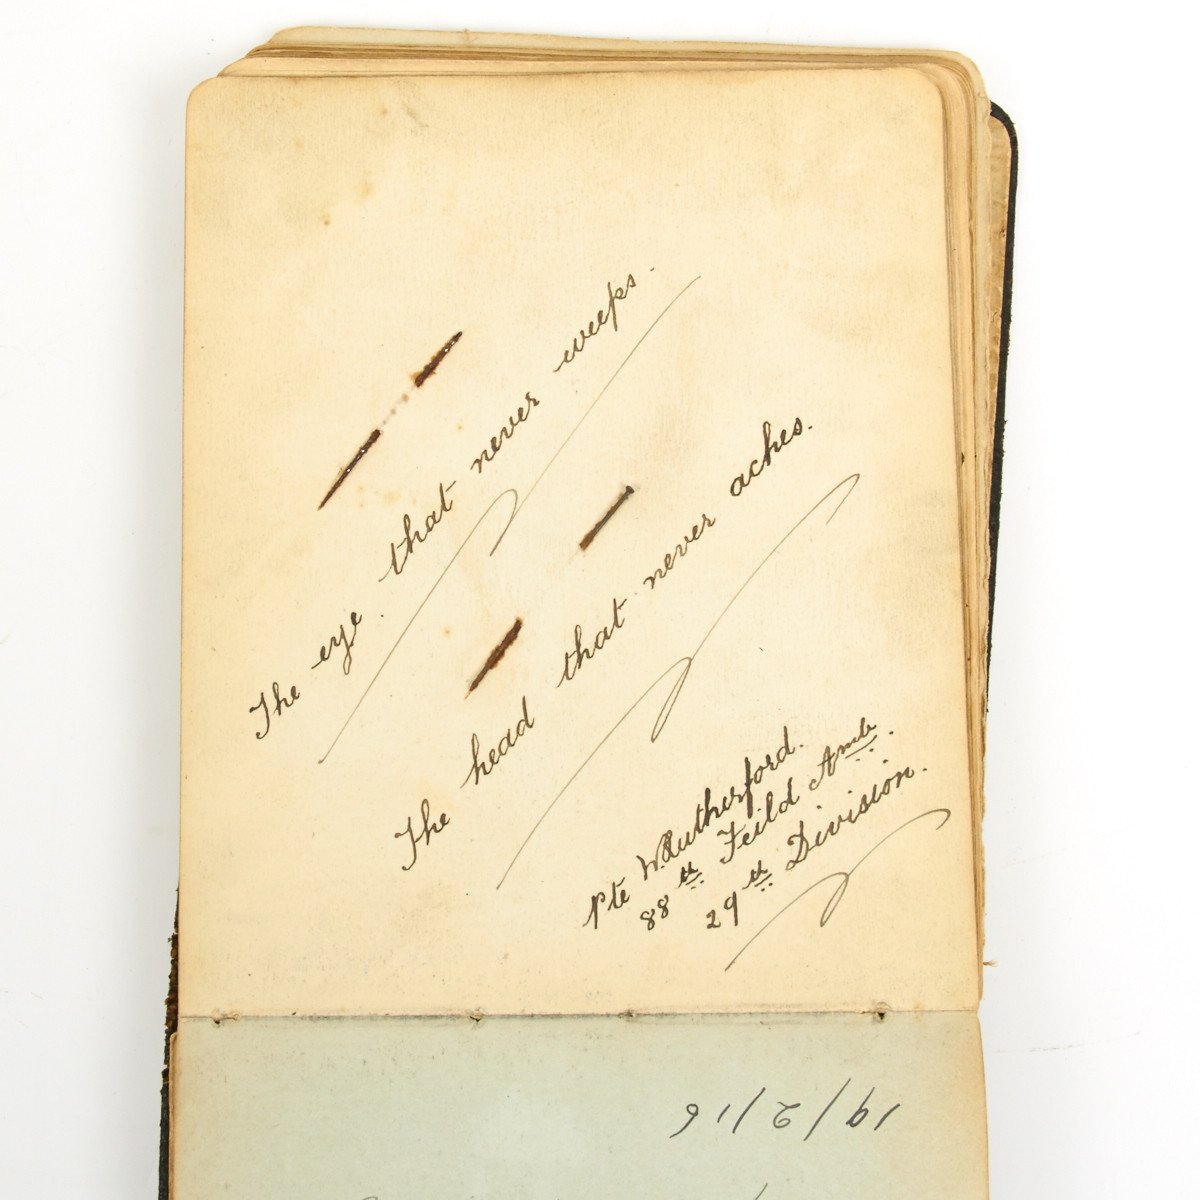 The eye that never weeps.
The head that never aches.
Pte W. Rutherford.
88th Feild Amb.
29th Division.
19/2/16